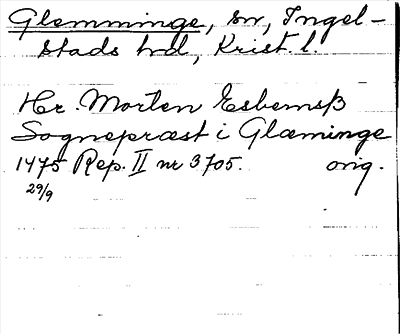 Glemminge, sn, Ingel-
stads hd, Krist. l.
Hr. Morten Esbernsß
Sognepræst i Glæminge
1475 Rep. II nr 3705. orig.
29/9